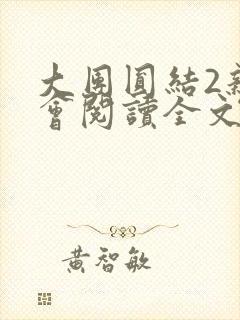 大團圓結2
會閱讀全文
黃智敏